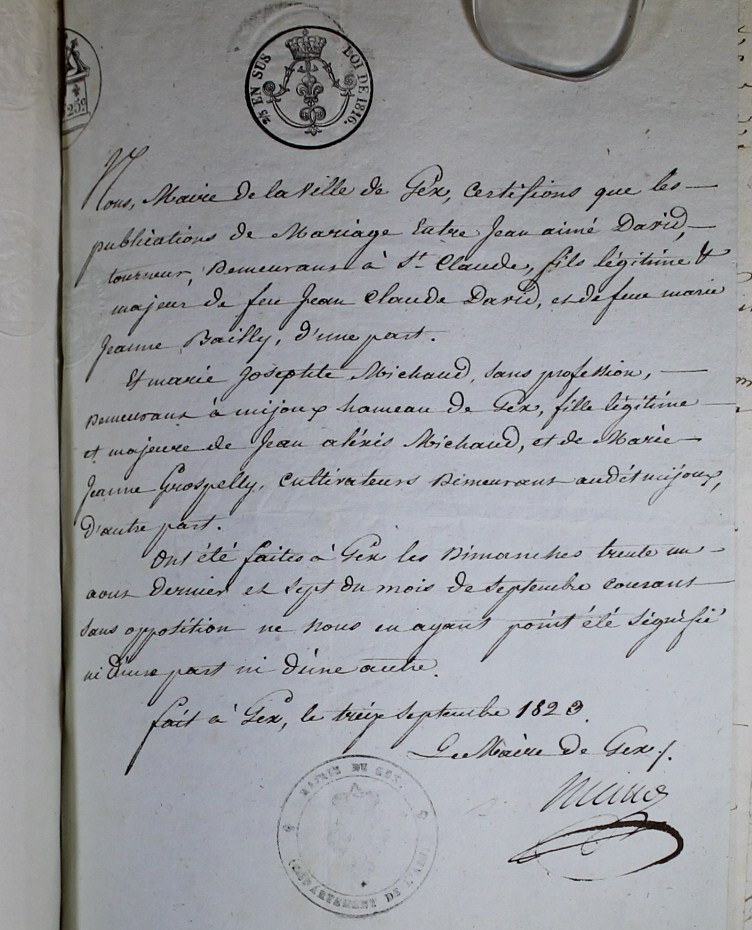 2/5 EN SUS LOI DE 1816.
252
Nous, Maire de la Ville de Gex, certifions que les
publications de Mariage Entre Jean aimé David,
tourneur, Demeurant à St. Claude, fils légitime &
majeur de feu Jean Claude David, et de feue marie
Jeanne Bailly, d'une part.
Et marie Josephte Michaud, sans profession,
Demeurant à mijoux hameau de Gex, fille légitime
et majeure de Jean aléxis Michaud, et de Marie
Jeanne Grospelly, cultivateurs Demeurant audit mijoux,
d'autre part.
Ont été faites à Gex les Dimanches trente un
aout dernier et sept du mois de septembre courant
sans opposition ne nous en ayant point été signifié
ni d'une part ni d'une autre.
fait à Gex, le treize septembre 1823.
Le Maire de Gex,
MAIRIE DU GEX.
DEPARTEMENT DE L'AIN